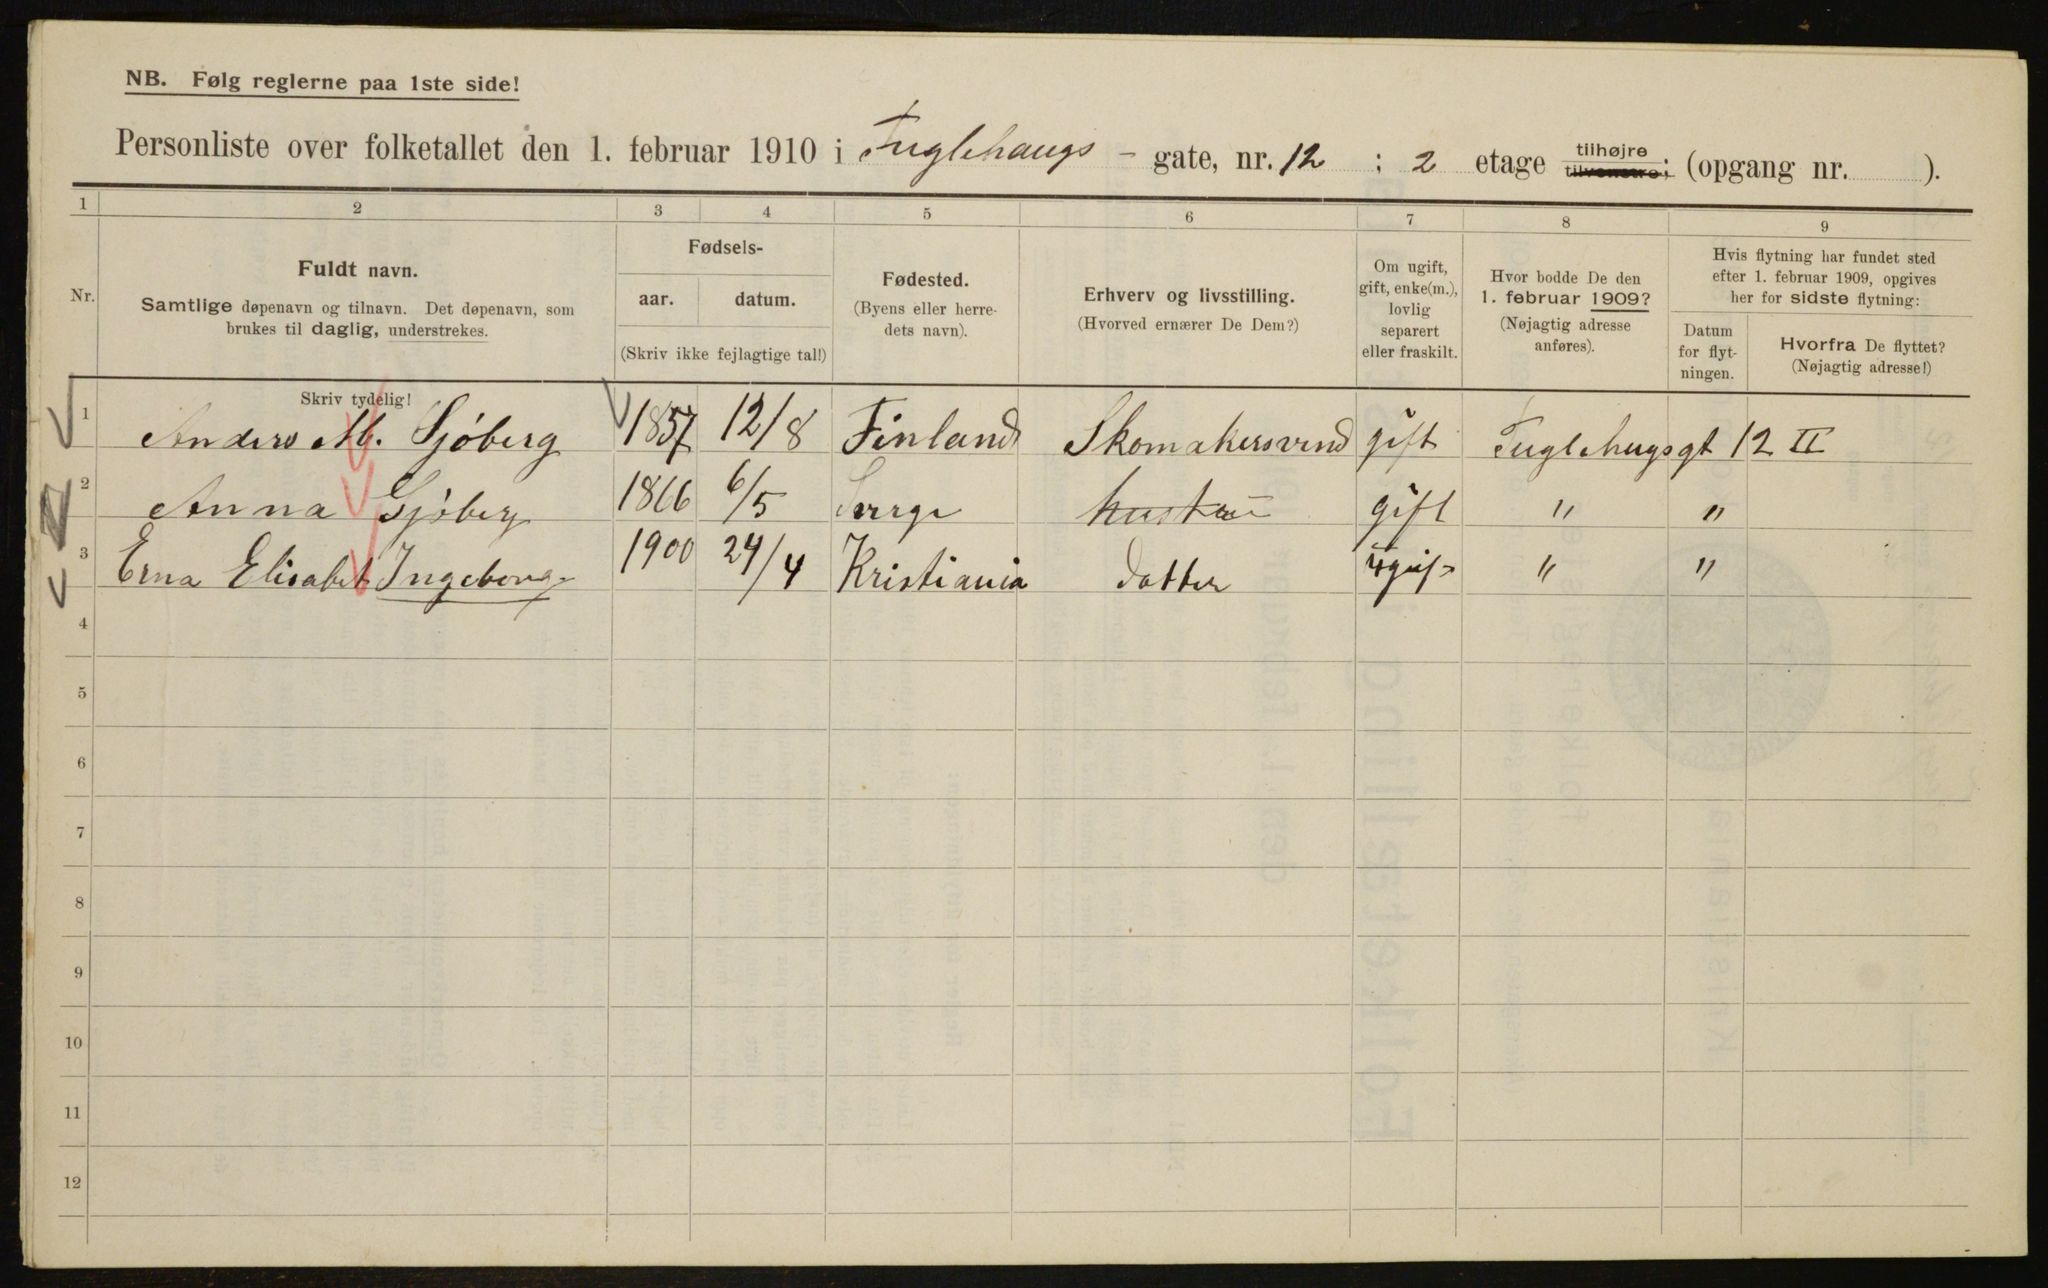 NB. Følg reglerne paa 1ste side!
Personliste over folketallet den 1. februar 1910 i Fuglehaugs - gate, nr. 12 ; 2 etage tilhøjre tilvenstre; (opgang nr. ).
1 2 3 4 5 6 7 8 9
Nr.
Fuldt navn.
Samtlige døpenavn og tilnavn. Det døpenavn, som
brukes til daglig, understrekes.
Fødsels-
aar. datum.
(Skriv ikke fejlagtige tal!)
Fødested.
(Byens eller herre-
dets navn).
Erhverv og livsstilling.
(Hvorved ernærer De Dem?)
Om ugift,
gift, enke(m.),
lovlig
separert
eller fraskilt.
Hvor bodde De den
1. februar 1909?
(Nøjagtig adresse
anføres).
Hvis flytning har fundet sted
efter 1. februar 1909, opgives
her for sidste flytning:
Datum
for flyt-
ningen.
Hvorfra De flyttet?
(Nøjagtig adresse!)
Skriv tydelig!
1 Anders M. Sjöberg 1857 12/8 Finland Skomakersvend gift Fuglehugsgt 12 II
2 Anna Sjöberg 1866 6/5 gift " "
3 Erna Elisabet Ingeborg 1900 24/4 Kristiania datter ugift " "
4
5
6
7
8
9
10
11
12